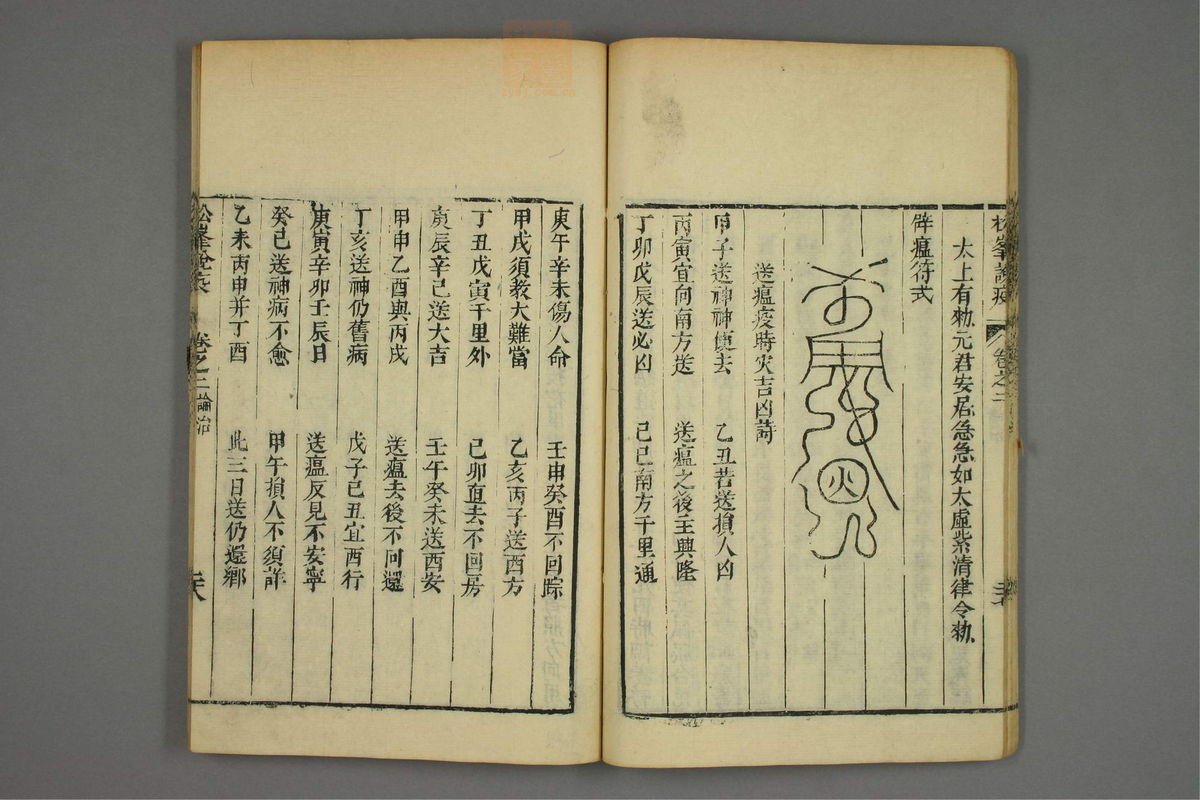 松峯說疫
卷之二
二十七
太上有勑元君安居急急如太虛紫清律令勑
辟瘟符式
送瘟疫時灾吉凶詩
甲子送神神便去　乙丑若送損人凶
丙寅宜向南方送　送瘟之後主興隆
丁卯戊辰送必凶　己巳南方千里通
庚午辛未傷人命　壬申癸酉不回踪
甲戌須教大難當　乙亥丙子送西方
丁丑戊寅千里外　己卯直去不回房
庚辰辛巳送大吉　壬午癸未送西安
甲申乙酉與丙戌　送瘟去後不回還
丁亥送神仍舊病　戊子己丑宜西行
庚寅辛卯壬辰日　送瘟反見不安寧
癸巳送神病不愈　甲午損人不須詳
乙未丙申并丁酉　此三日送仍還鄉
松峯說疫　卷之二　論治